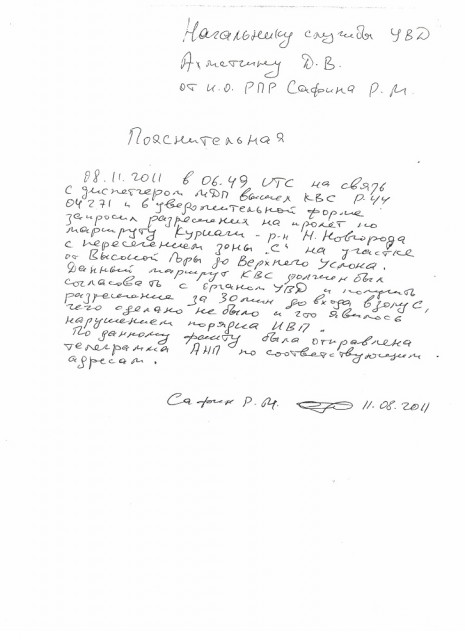 Начальнику службы УВД
Ахметчину Д.В.
от и.о. РПР Сафина Р.М.
Пояснительная
08.11.2011 в 06.49 UTC на связь
с диспетчером МДП вышел КВС Р-44
04271 и в уведомительной форме
запросил разрешения на пролет по
маршруту Куркачи - р-н Н.Новгорода
с пересечением зоны "С" на участке
от Высокой Горы до Верхнего Услона.
Данный маршрут КВС должен был
согласовать с органом УВД и получить
разрешение за 30 мин до входа в зону С,
чего сделано не было и это явилось
нарушением порядка ИВП.
По данному факту была отправлена
телеграмма АНП по соответствующим
адресам.
Сафин Р.М. 11.08.2011